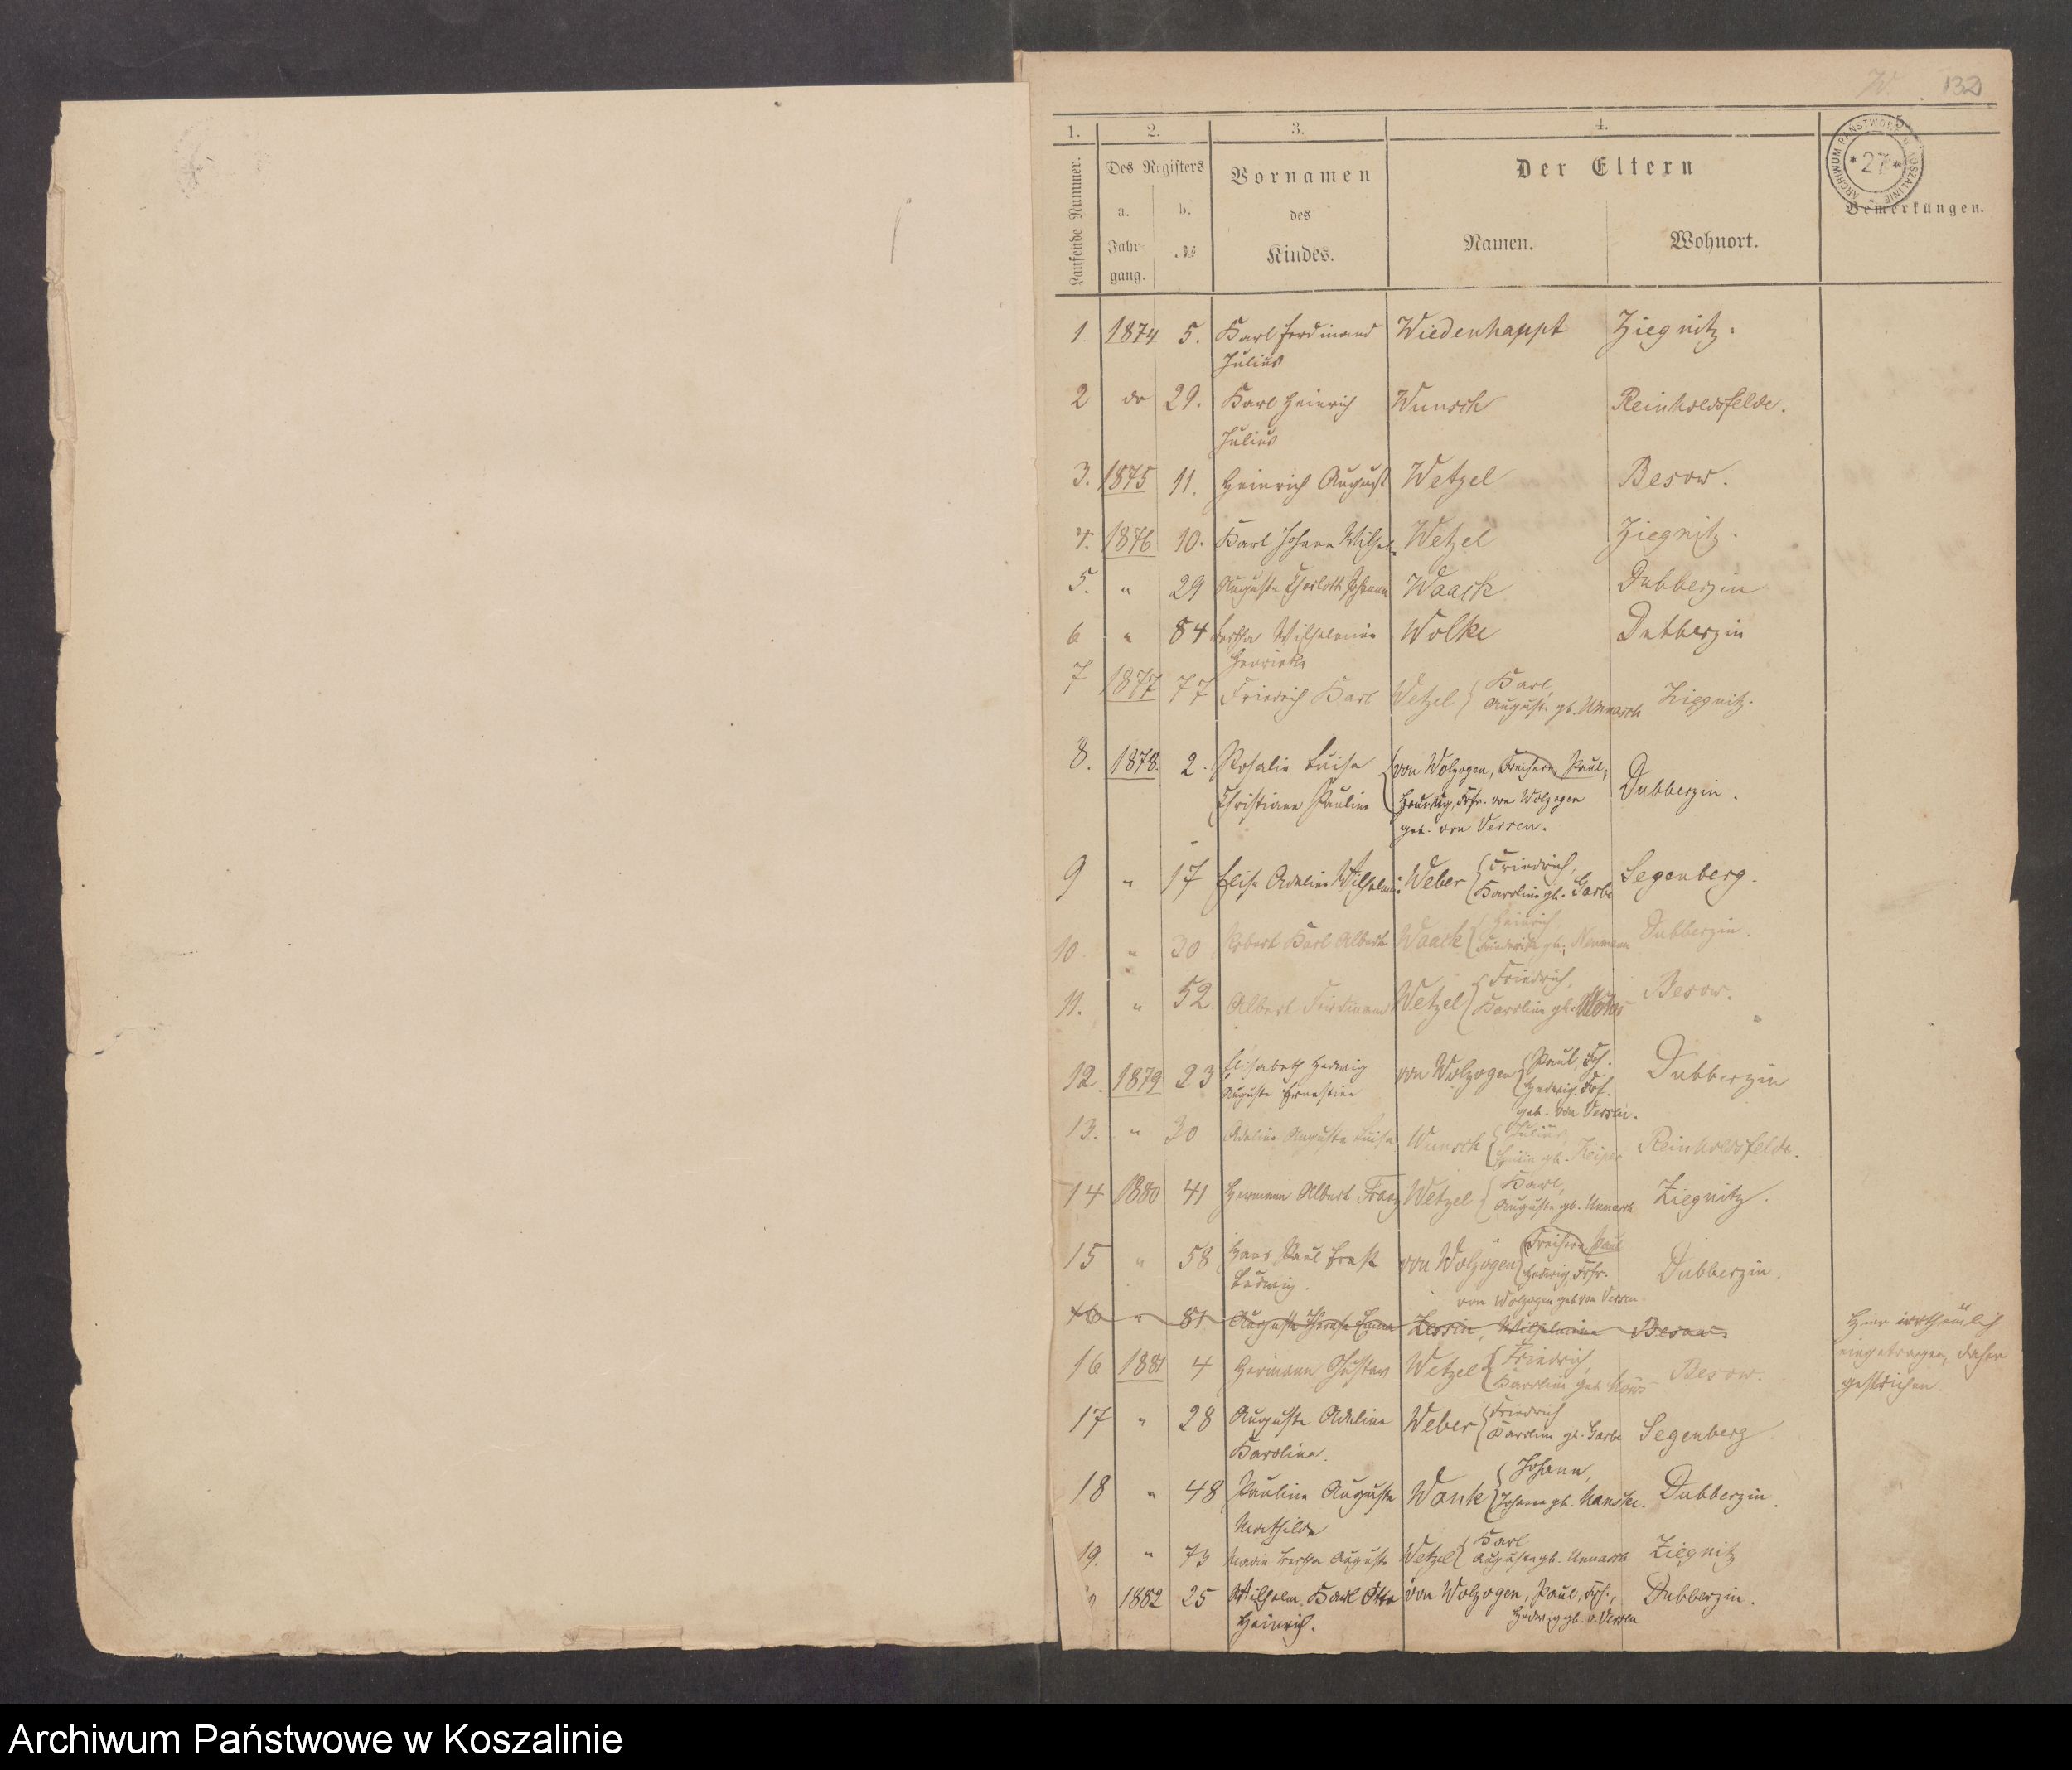 W. 132
1. 2. 3. 4. 5.
Laufende Nummer.
Des Registers
a. Jahrgang.
b. №
Vornamen des Kindes.
Der Eltern
Namen.
Wohnort.
Bemerkungen.
ARCHIWUM PAŃSTWOWE W KOSZALINIE * 27 *
1. 1874 5. Karl Ferdinand Wiedenhaupt Ziegnitz.
Julius
2 do 29. Karl Heinrich Wunsch Reinholdsfelde.
Julius
3. 1875 11. Heinrich August Wetzel Besow.
4. 1876 10. Karl Johann Wilhelm Wetzel Ziegnitz.
5. " 29 Auguste Charlotte Johanne Waack Dubberzin
6 " 84 Bertha Wilhelmine Wolke Dubberzin
Henriette
7 1877 77 Friedrich Karl Wetzel { Karl,
Auguste gb. Unnasch Ziegnitz.
8. 1878. 2. Rosalie Luise von Wolzogen, Freiherr, Paul,
Christiane Pauline Hedwig, Frfr. von Wolzogen Dubberzin.
geb. von Versen.
9 " 17 Elise Adeline Wilhelmine Weber { Friedrich, Segenberg.
Karoline gb. Garbe
10. " 30 Robert Karl Albert Waack { Heinrich Dubberzin.
Friederike gb. Neumann
11. " 52. Albert Ferdinand Wetzel { Friedrich, Besow.
Karoline gb.
12. 1879 23 Elisabeth Hedwig von Wolzogen { Paul, Frh. Dubberzin
Auguste Ernestine Hedwig, Frf.
geb. von Versen.
13. " 30 Adeline Auguste Luise Wunsch { Julius Reinholdsfelde.
gb. Keiper
14 1880 41 Hermann Albert Franz Wetzel { Karl, Ziegnitz.
Auguste gb. Unnasch
15 " 58 Hans Paul Ernst von Wolzogen { Freiherr, Paul Dubberzin.
Ludwig. Hedwig, Frfr.
von Wolzogen geb von Versen
16 " 81 Auguste Therese Emma Zessin, Wilhelmine Besow.
Hier irrthümlich
eingetragen, daher
gestrichen.
16 1881 4 Hermann Gustav Wetzel { Friedrich, Besow.
Karoline geb
17 " 28 Auguste Adeline Weber { Friedrich Segenberg
Karoline. Karoline gb. Garbe
18 " 48 Pauline Auguste Wonk { Johann, Dubberzin.
Mathilde Johanne gb. Manske.
19. " 73 Marie Bertha Auguste Wetzel { Karl Ziegnitz
Auguste gb. Unnasch
1882 25 Wilhelm Karl Otto von Wolzogen, Paul, Frh., Dubberzin.
Heinrich. Hedwig gb. v. Versen
Archiwum Państwowe w Koszalinie